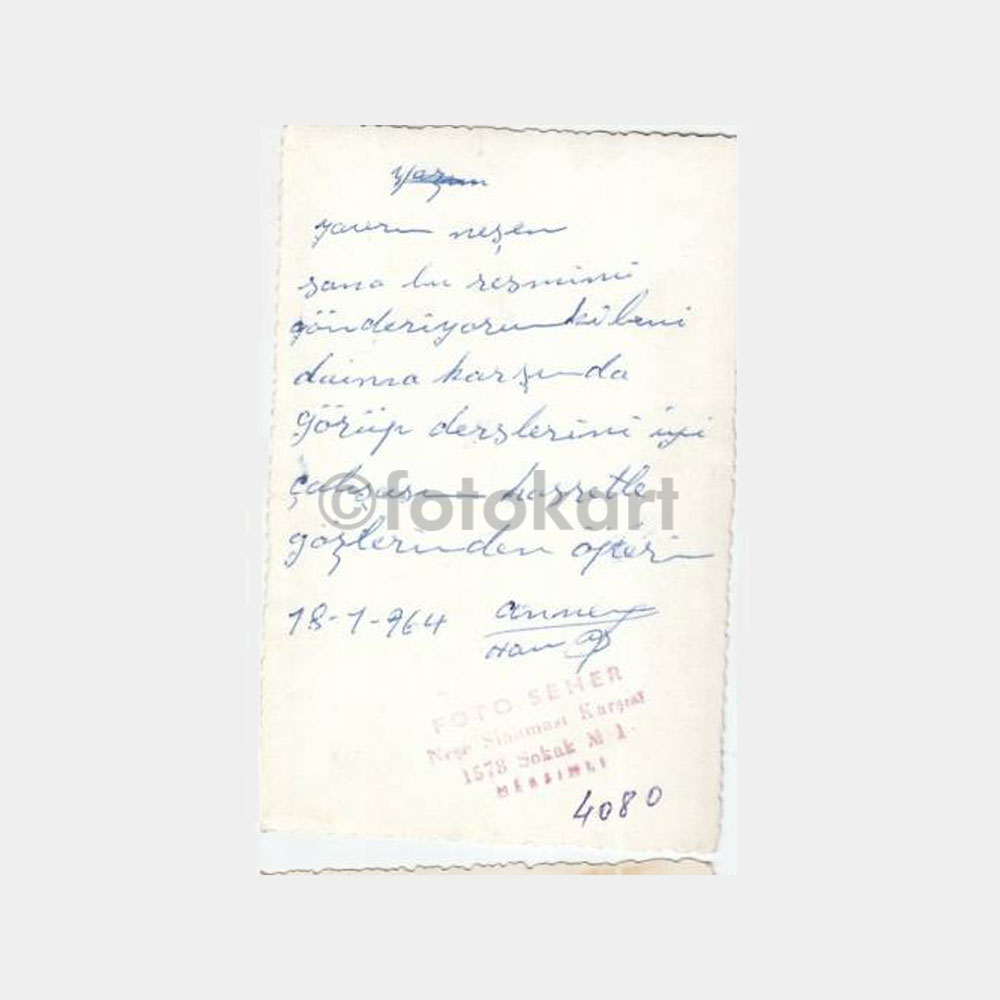 yavrum neşen
sana bu resmimi
gönderiyorum ki beni
daima karşında
görüp derslerini iyi
çalışasın hasretle
gözlerinden öperim
18-1-964 annen
©fotokart
FOTO SEHER
Neşe Sineması Karşısı
1578 Sokak No 1
MERSİNLİ
4080